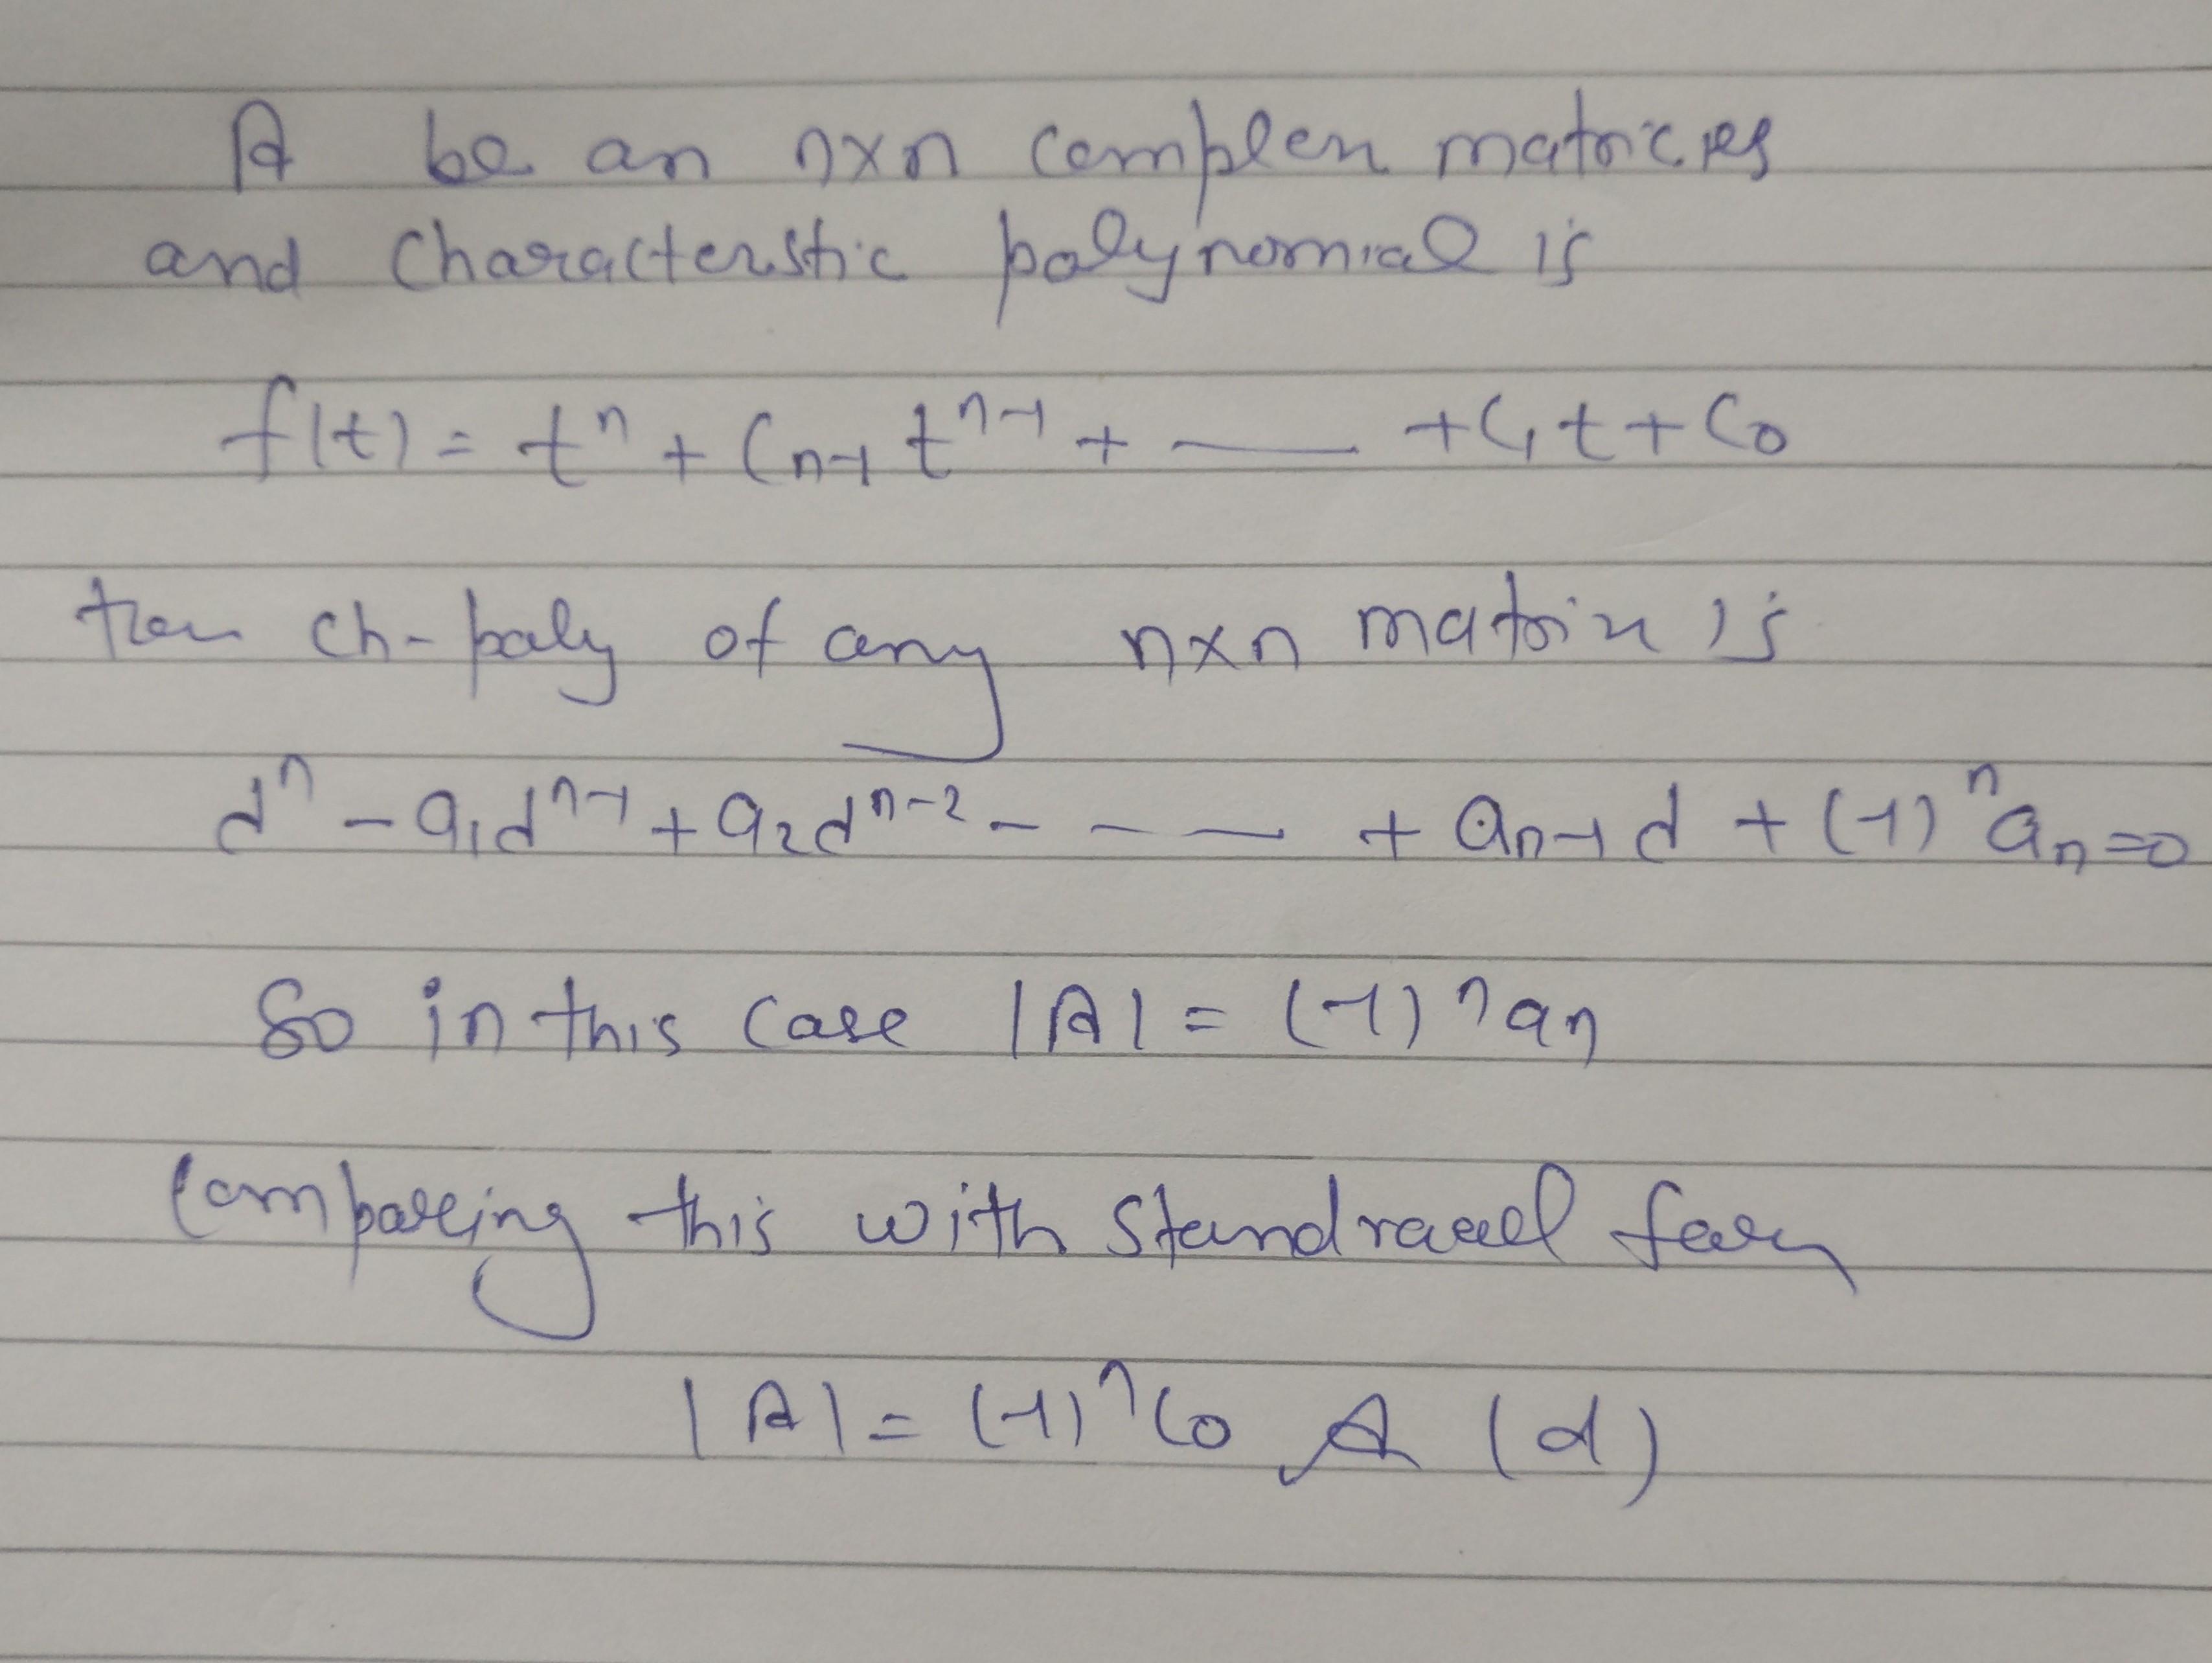 A be an n×n complex matrices
and characterstic polynomial is
f(t) = t^n + C_{n-1} t^{n-1} + —— + C_1 t + C_0
then ch-poly of any n×n matrix is
d^n - a_1 d^{n-1} + a_2 d^{n-2} - - — + a_{n-1} d + (-1)^n a_n = 0
So in this case |A| = (-1)^n a_n
Comparing this with
|A| = (-1)^n C_0 (d)